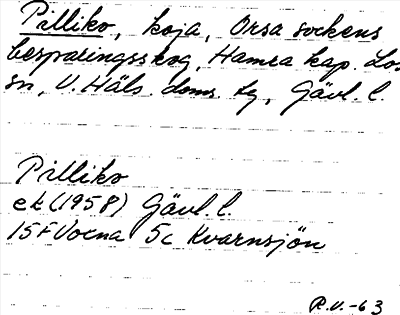 Pilliko, koja, Orsa sockens
besparingsskog, Hamra kap. Los
sn, V. Häls. doms. tg, Gävl. l.
Pilliko
ek (1958) Gävl. l.
15F Voxna 5c Kvarnsjön
R.V.-63